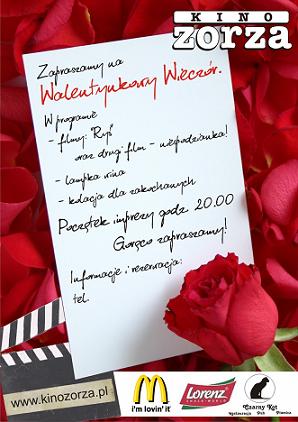 KINO
zorza
Zapraszamy na
Walentynkowy Wieczór.
W programie
- filmy: "Ryś"
oraz drugi film - niespodzianka!
- lampka wina
- kolacja dla zakochanych
Początek imprezy godz 20.00
Gorąco zapraszamy!
Informacje i rezerwacja:
tel.
www.kinozorza.pl
M
i'm lovin' it
Lorenz
SNACK-WORLD
Czarny Kot
Restauracja Pub Pizzeria